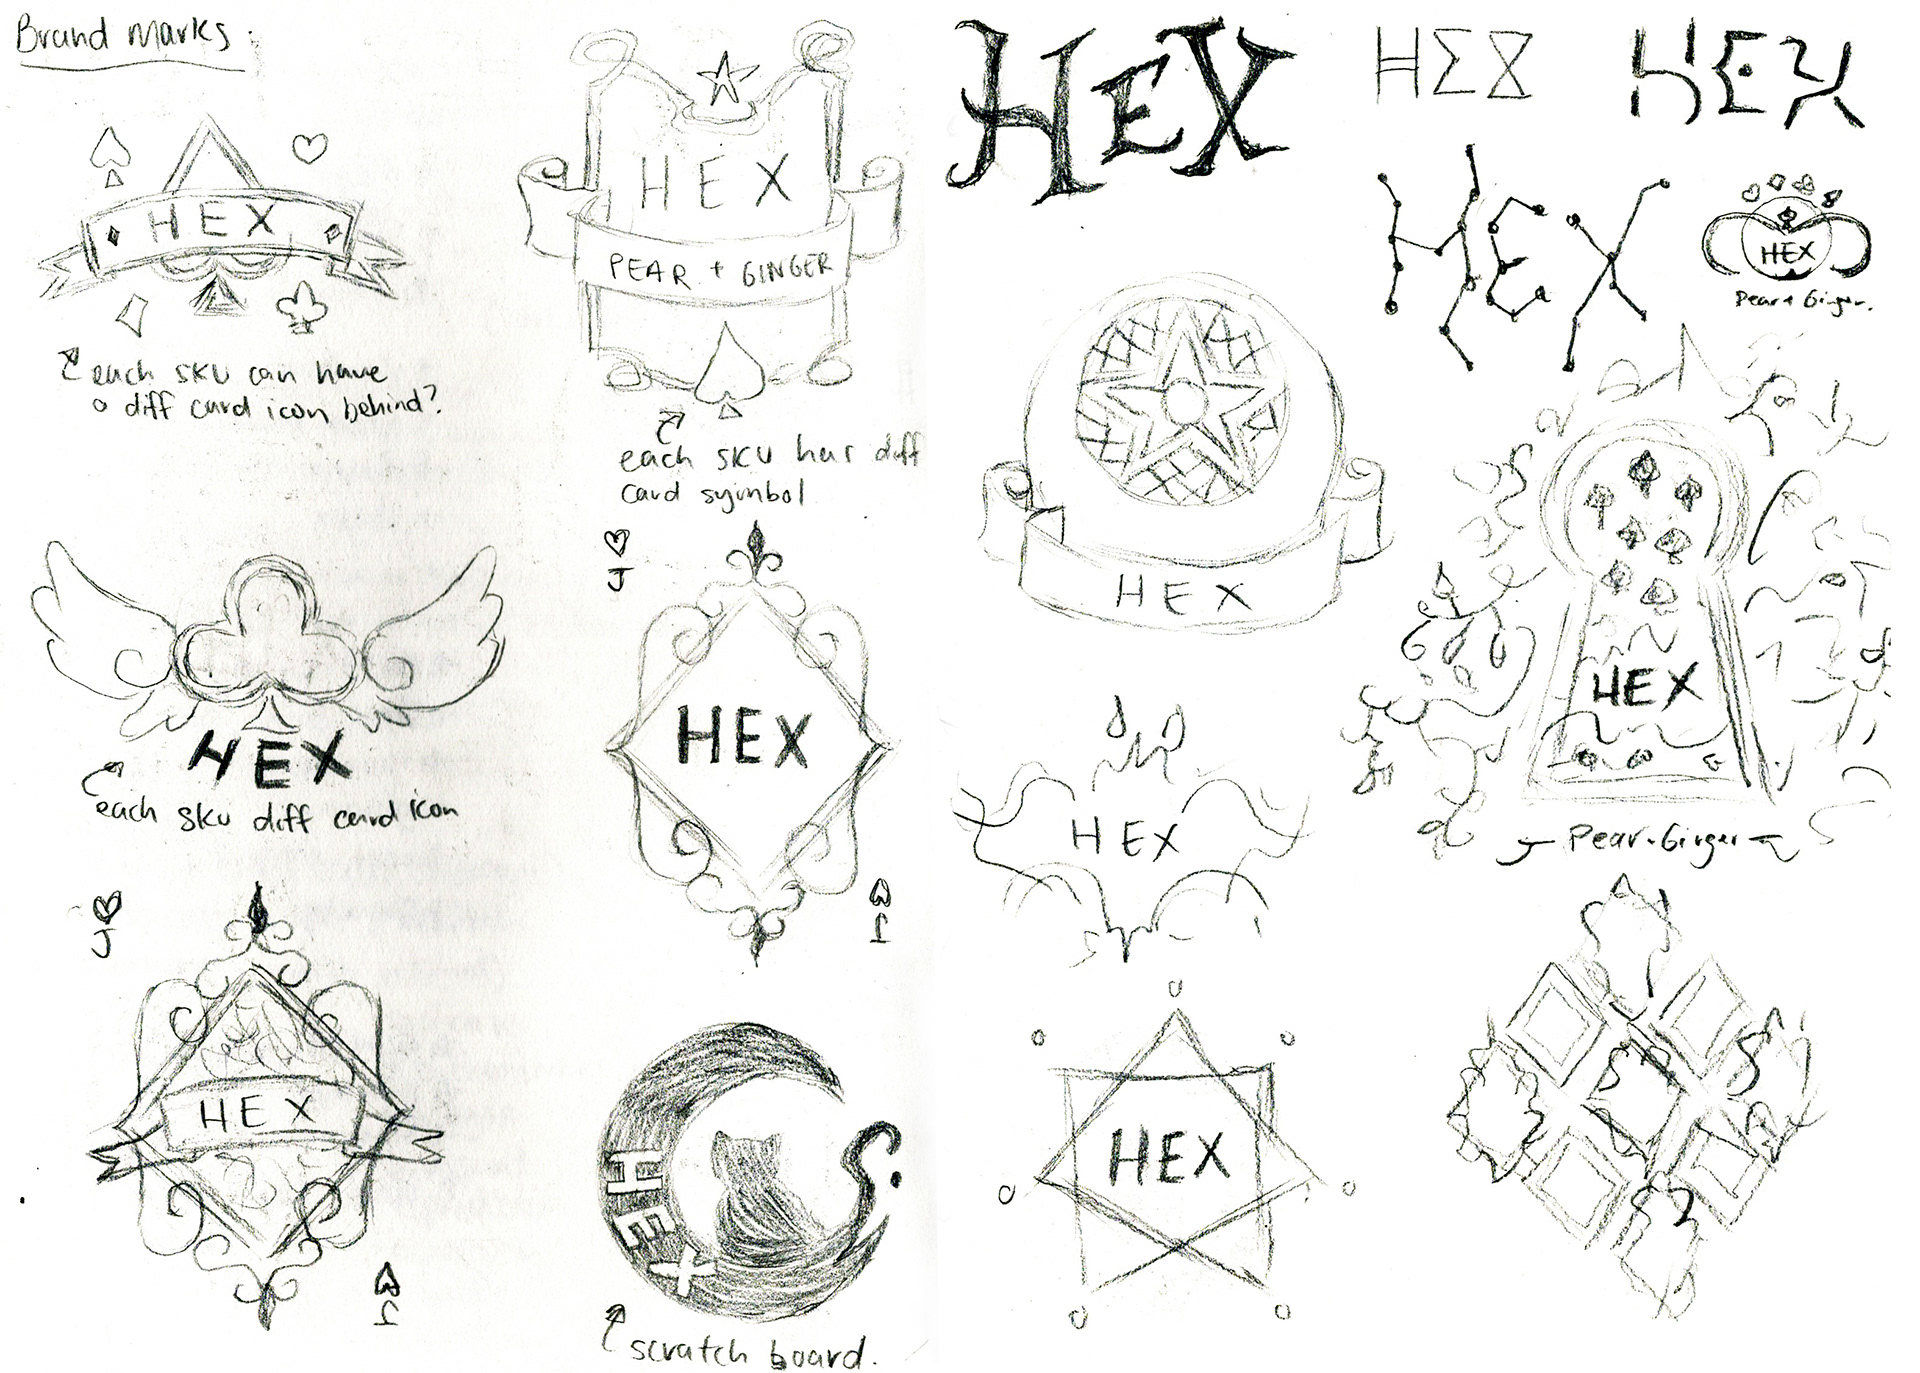 Brand marks.
HEX
each sku can have
a diff card icon behind?
HEX
PEAR + GINGER
each sku has diff
card syimbol
HEX
each sku diff card icon
J
HEX
J
J
HEX
J
HEX
scratch board.
HEX
HEX
HEX
HEX
HEX
Pear + Ginger.
HEX
HEX
Pear + Ginger
HEX
HEX